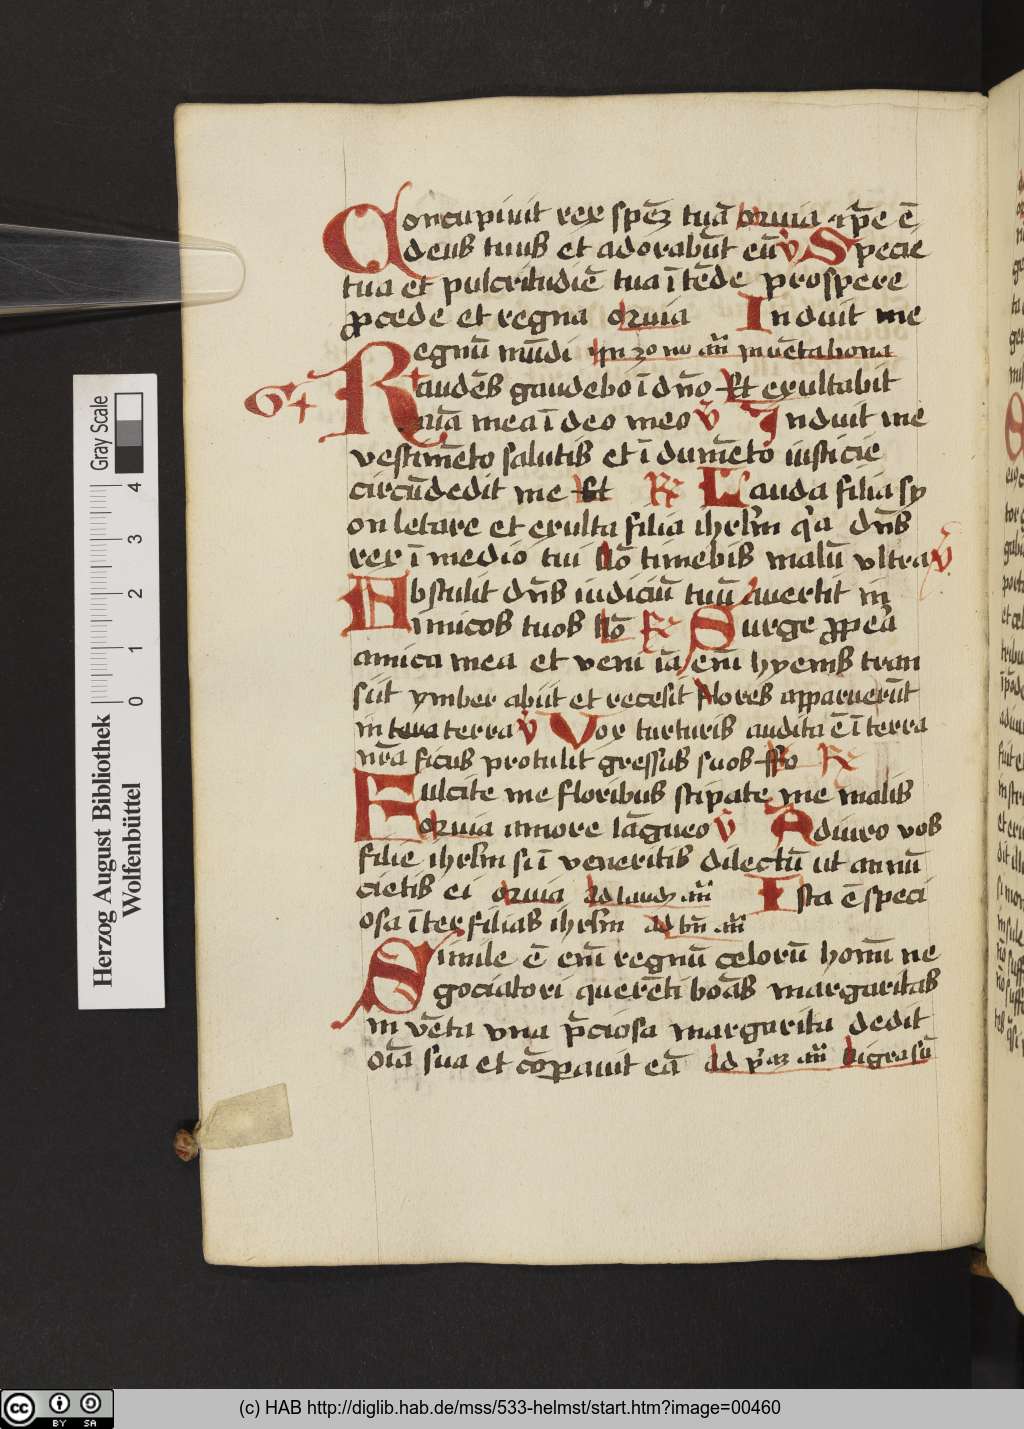 Concupiuit rex spēꝫ tuā oruia ip̄e ē
deus tuus et adorabūt eū v̄ Specie
tua et pulcritudiē tua ītēde prospere
ꝓcede et regna oruia Induit me
Regnū mūdi in ꝫo no an̄ inuēta bona
G+ audēs gaudebo ī dn̄o Et exultabit
aīa mea ī deo meo v̄ Induit me
vestimēto salutis et ī dumēto iusticie
circūdedit me Et R̄ Lauda filia sy
on letare et exulta filia ihrl̄m q̄a dn̄s
rex ī medio tui Nō timebis malū vltra v̄
Abstulit dn̄s iudiciū tuū auertit in
inimicos tuos Nō R̄ Surge ꝓpeā
amica mea et veni iā em̄ hyems tran
sijt ymber abijt et recesit flores apparuerūt
in terra terra v̄ Vox turturis audita ē ī terra
nr̄a ficus protulit gressus suos ffo R̄
Fulcite me floribus stipate me malis
oruia amore lāgueo v̄ Adiuro vos
filie ihrl̄m si ī veneritis dilectū ut annū
cietis ei oruia ad laudꝫ an̄ Ista ē speci
osa īter filias ihrl̄m ad bn̄ an̄
Simile ē em̄ regnū celorū homī ne
gociatori querēti boās margaritas
in vēta vna p̄ciosa margarita dedit
oīa sua et cōꝑauit eā ad p̄aꝫ an̄ Nigra sū
Gray Scale
0 1 2 3 4
Herzog August Bibliothek
Wolfenbüttel
cc BY SA
(c) HAB http://diglib.hab.de/mss/533-helmst/start.htm?image=00460